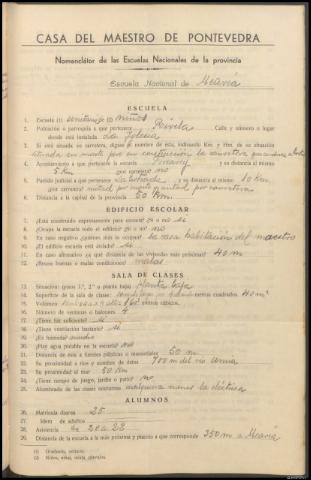 CASA DEL MAESTRO DE PONTEVEDRA
Nomenclátor de las Escuelas Nacionales de la provincia
Escuela Nacional de
ESCUELA
1. Escuela (1) unitaria (2) niños
2. Población o parroquia a que pertenece Calle y número o lugar
donde está instalada La Iglesia
3. Si está situada en carretera, dígase el nombre de ésta, indicando Km. y Hm. de su situación
4. Ayuntamiento a que pertenece y su distancia al mismo
5 Km por carretera? no
5. Partido judicial a que pertenece La Estrada y su distancia al mismo 10 Km
por carretera? mitad por monte y mitad por carretera
6. Distancia a la capital de la provincia 50 Km.
EDIFICIO ESCOLAR
7. ¿Está construído expresamente para escuela? (si o no) si
8. ¿Ocupa la escuela todo el edificio? (si o no) no
9. En caso negativo ¿quiénes más lo ocupan? la casa habitación del maestro
10. ¿El edificio escuela está aislado? si
11. En caso afirmativo ¿a qué distancia de las viviendas más próximas? 40 m
12. ¿Reune buenas o malas condiciones? malas
SALA DE CLASES
13. Situación: (planta baja, 1.º, 2.º o planta baja) Planta baja
14. Superficie de la sala de clases: metros cuadrados. 40 m²
15. Volumen metros cúbicos.
16. Número de ventanas o balcones 4
17. ¿Tiene luz suficiente? si
18. ¿Tiene ventilación bastante? si
19. ¿Es húmeda?
20. ¿Hay agua potable en la escuela? no
21. Distancia de ésta a fuentes públicas o manantiales 50 m
22. Su proximidad a ríos y nombre de éstos 700 m del río
23. Su proximidad al mar 50 Km
24. ¿Tiene campo de juego, jardín o patio? no
25. Alumbrado de las clases nocturnas cualquiera menos la eléctrica
ALUMNOS
26. Matrícula diurna 25
27. Idem de adultos
28. Asistencia de 20 a 22
29. Distancia de la escuela a la más próxima y plazas a que corresponde 350 m a
(1) Graduada, unitaria.
(2) Niños, niñas, mixta, párvulos.